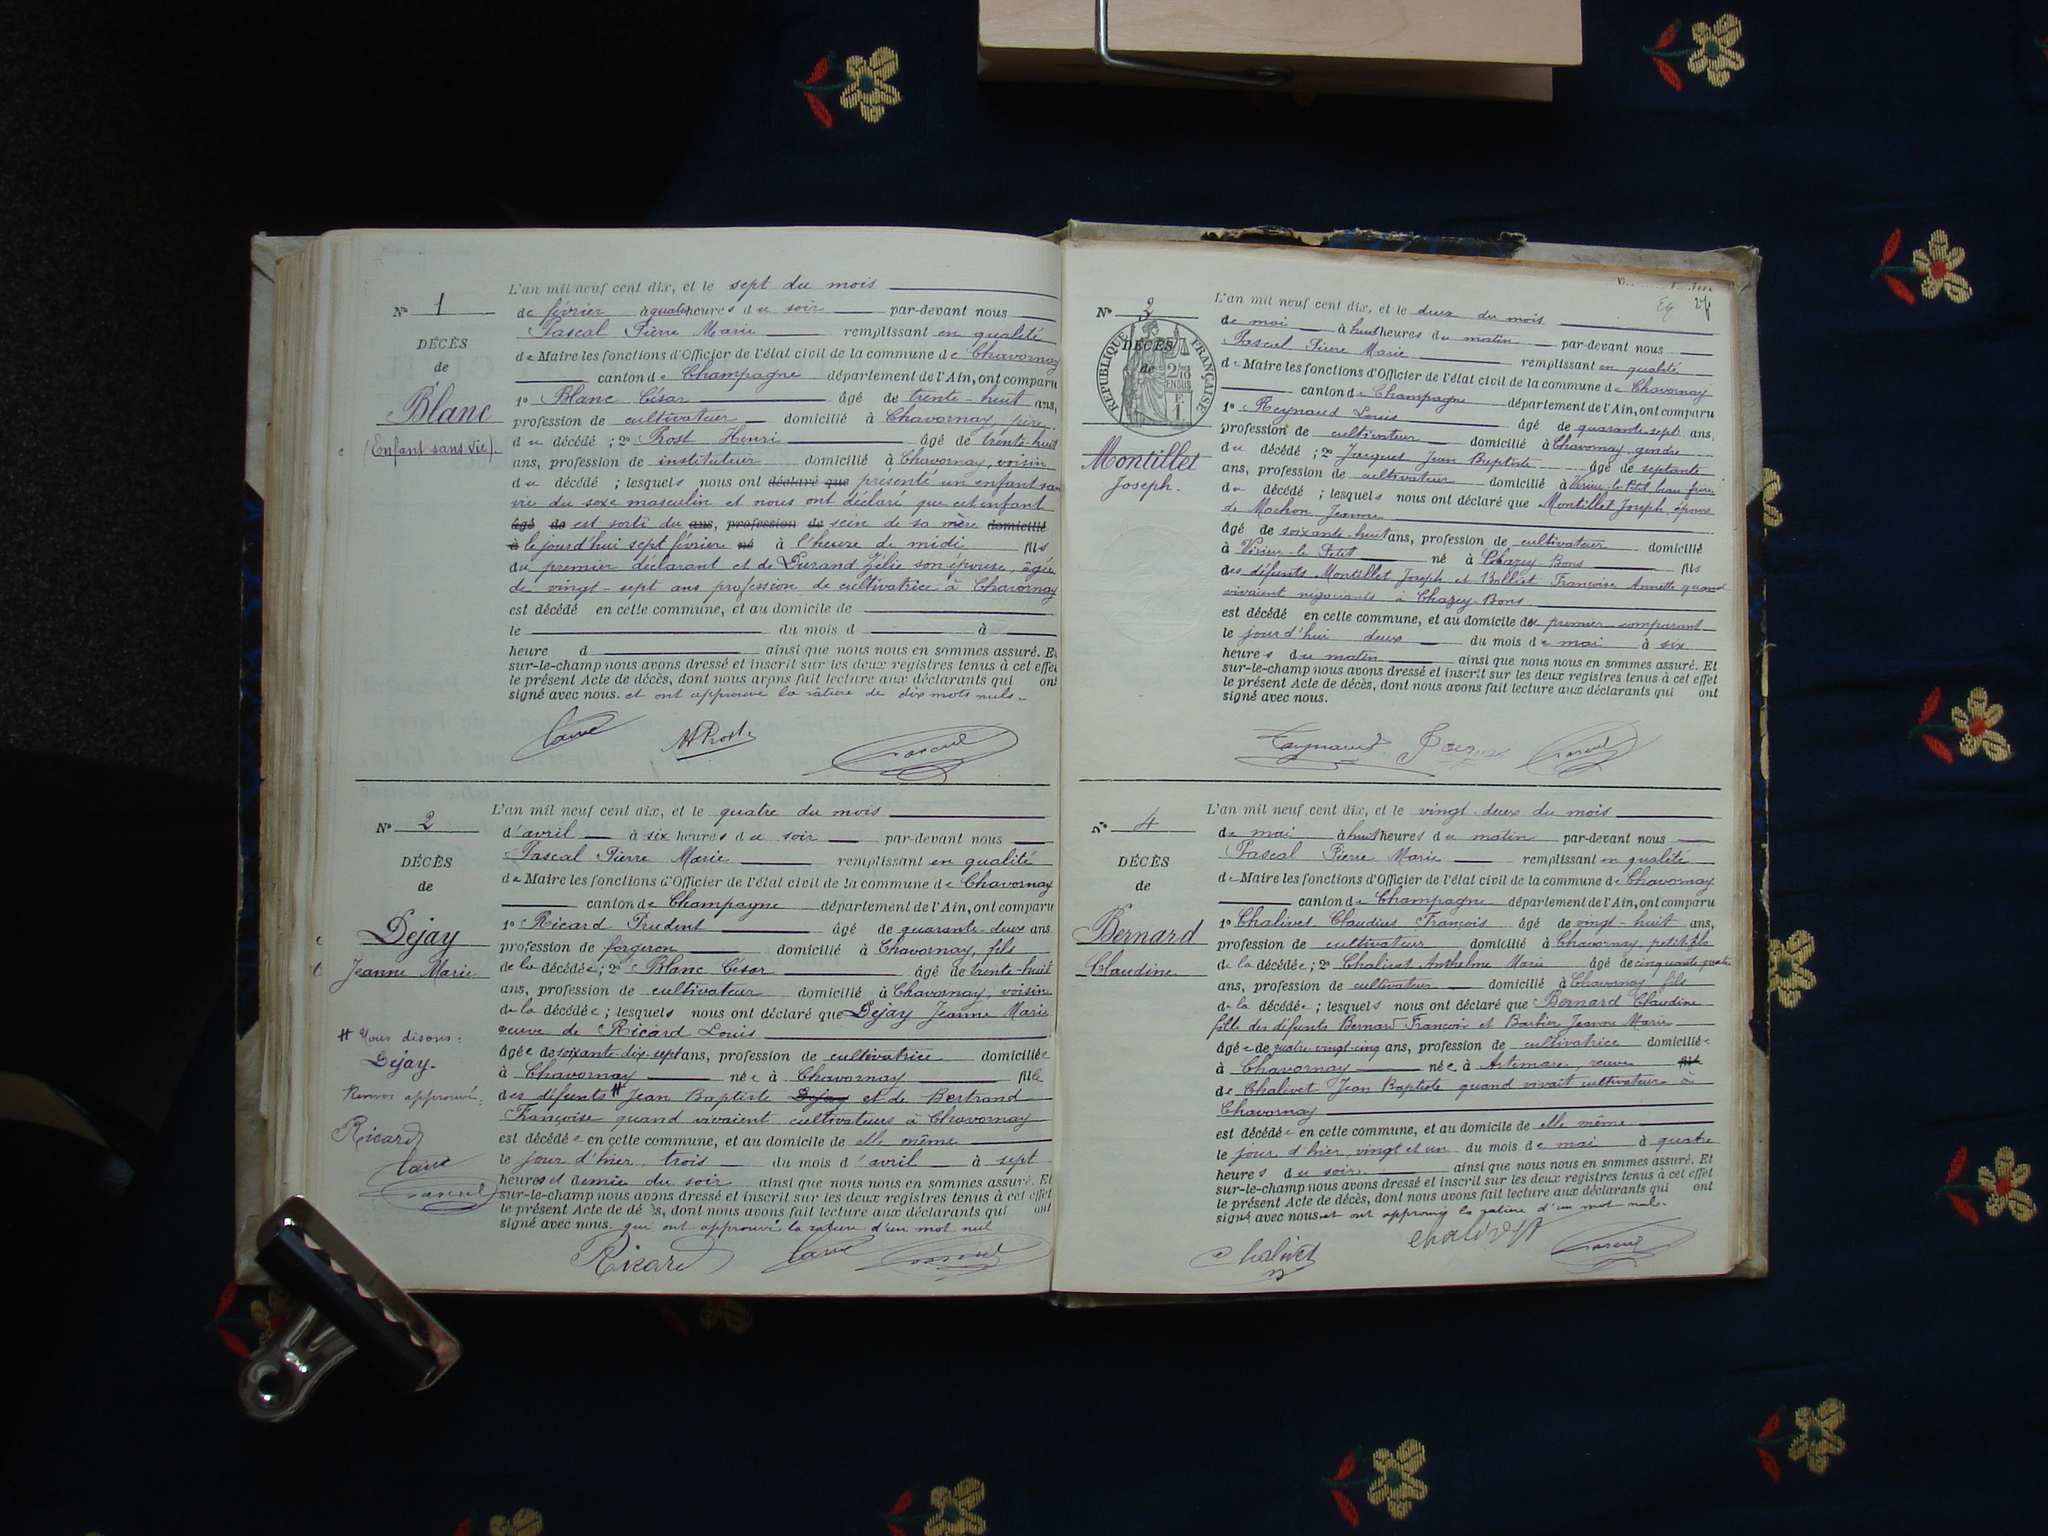 N° 1
DÉCÈS
de
Blanc
(Enfant sans vie).
L'an mil neuf cent dix, et le sept du mois
de février à quatre heures du soir par-devant nous
Pascal Pierre Marie remplissant en qualité
de Maire les fonctions d'Officier de l'état civil de la commune de Chavornay
canton de Champagne département de l'Ain, ont comparu
1° Blanc César âgé de trente-huit ans,
profession de cultivateur domicilié à Chavornay, père
du décédé ; 2° Prost Henri âgé de trente-huit
ans, profession de instituteur domicilié à Chavornay, voisin
du décédé ; lesquels nous ont déclaré que présenté un enfant sans
vie du sexe masculin et nous ont déclaré que cet enfant
âgé de est sorti du ans, profession de sein de sa mère domicilié
à le jourd'hui sept février né à l'heure de midi fils
du premier déclarant et de Durand Zélie son épouse, âgée
de vingt-sept ans profession de cultivatrice à Chavornay
est décédé en cette commune, et au domicile de
le du mois d à
heure d ainsi que nous nous en sommes assuré. Et
sur-le-champ nous avons dressé et inscrit sur les deux registres tenus à cet effet
le présent Acte de décès, dont nous avons fait lecture aux déclarants qui ont
signé avec nous. et ont approuvé la rature de dix mots nuls.
HProst Pascal
N° 2
DÉCÈS
de
Dejay
Jeanne Marie
# Nous disons :
Dejay.
Renvoi approuvé :
Ricard
Pascal
L'an mil neuf cent dix, et le quatre du mois
d'avril à six heures du soir par-devant nous
Pascal Pierre Marie remplissant en qualité
de Maire les fonctions d'Officier de l'état civil de la commune de Chavornay
canton de Champagne département de l'Ain, ont comparu
1° Ricard Prudent âgé de quarante-deux ans
profession de forgeron domicilié à Chavornay, fils
de la décédée ; 2° Blanc César âgé de trente-huit
ans, profession de cultivateur domicilié à Chavornay, voisin
de la décédée ; lesquels nous ont déclaré que Dejay Jeanne Marie
veuve de Ricard Louis
âgée de soixante dix sept ans, profession de cultivatrice domiciliée
à Chavornay née à Chavornay fille
des défunts # Jean Baptiste Dejay et de Bertrand
Françoise quand vivaient cultivateurs à Chavornay
est décédée en cette commune, et au domicile de elle même
le jour d'hier, trois du mois d'avril à sept
heures et demie du soir ainsi que nous nous en sommes assuré. Et
sur-le-champ nous avons dressé et inscrit sur les deux registres tenus à cet effet
le présent Acte de décès, dont nous avons fait lecture aux déclarants qui ont
signé avec nous. qui ont approuvé la rature d'un mot nul
Ricard Pascal
27
N° 3
RÉPUBLIQUE FRANÇAISE
DÉCÈS
de
Montillet
Joseph.
L'an mil neuf cent dix, et le deux du mois
de mai à huit heures du matin par-devant nous
Pascal Pierre Marie remplissant en qualité
de Maire les fonctions d'Officier de l'état civil de la commune de Chavornay
canton de Champagne département de l'Ain, ont comparu
1° Reynaud Louis âgé de quarante-sept ans,
profession de cultivateur domicilié à Chavornay gendre
du décédé ; 2° Jacques Jean Baptiste âgé de septante
ans, profession de cultivateur domicilié à Virieu-le-Petit, beau frère
du décédé ; lesquels nous ont déclaré que Montillet Joseph, époux
de Machon Jeanne
âgé de soixante-huit ans, profession de cultivateur domicilié
à Virieu-le-Petit né à Chazey Bons fils
des défunts Montillet Joseph et Françoise Annette quand
vivaient négociants à Chazey-Bons
est décédé en cette commune, et au domicile du premier comparant
le jourd'hui deux du mois de mai à six
heures du matin ainsi que nous nous en sommes assuré. Et
sur-le-champ nous avons dressé et inscrit sur les deux registres tenus à cet effet
le présent Acte de décès, dont nous avons fait lecture aux déclarants qui ont
signé avec nous.
Reynaud Pascal
N° 4
DÉCÈS
de
Bernard
Claudine
L'an mil neuf cent dix, et le vingt deux du mois
de mai à huit heures du matin par-devant nous
Pascal Pierre Marie remplissant en qualité
de Maire les fonctions d'Officier de l'état civil de la commune de Chavornay
canton de Champagne département de l'Ain, ont comparu
1° Chalivet Claudius François âgé de vingt-huit ans,
profession de cultivateur domicilié à Chavornay petit fils
de la décédée ; 2° Chalivet Anthelme Marie âgé de cinquante quatre
ans, profession de cultivateur domicilié à Chavornay fils
de la décédée ; lesquels nous ont déclaré que Bernard Claudine
fille des défunts Bernard François et Barbier Jeanne Marie
âgée de quatre-vingt-cinq ans, profession de cultivatrice domiciliée
à Chavornay née à Artemare, veuve fil
de Chalivet Jean Baptiste quand vivait cultivateur à
Chavornay
est décédée en cette commune, et au domicile de elle même
le jour d'hier, vingt et un du mois de mai à quatre
heures du soir ainsi que nous nous en sommes assuré. Et
sur-le-champ nous avons dressé et inscrit sur les deux registres tenus à cet effet
le présent Acte de décès, dont nous avons fait lecture aux déclarants qui ont
signé avec nous et ont approuvé la rature d'un mot nul.
Chalivet Pascal